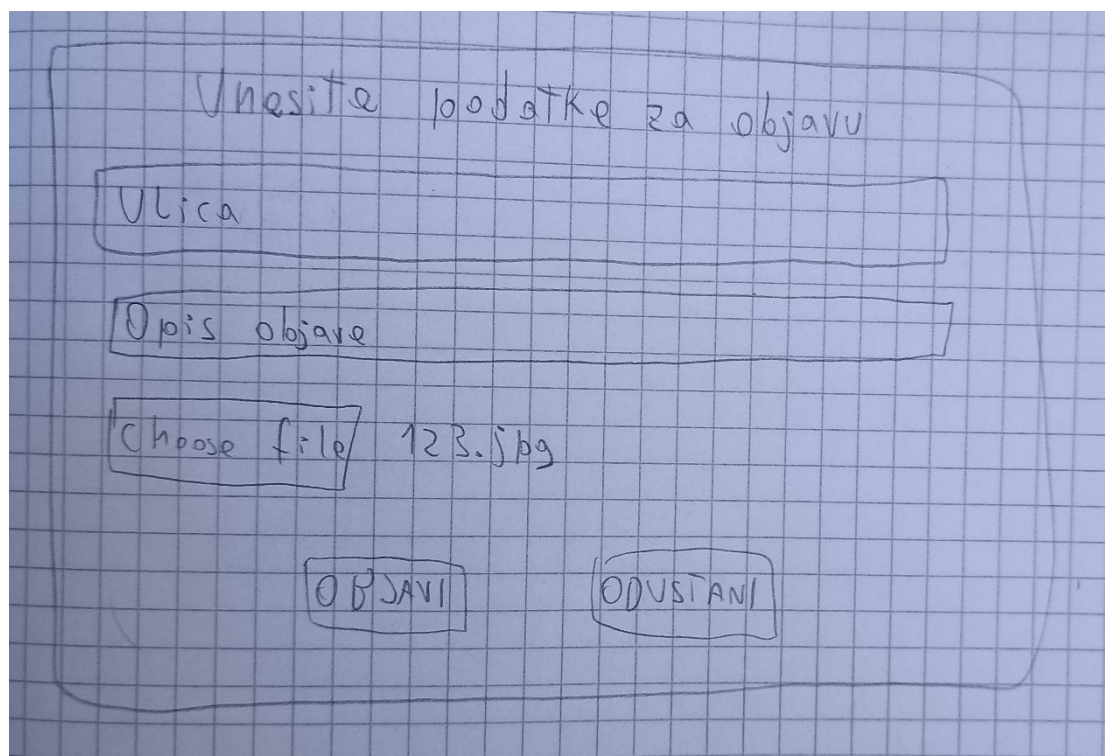 Unesite podatke za objavu
Ulica
Opis objave
Choose file 123.jpg
OBJAVI ODUSTANI